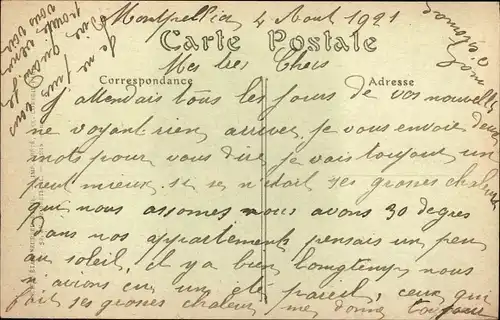 Montpellier 4 Aout 1921
Carte Postale
Mes tres Chers
Correspondance
Adresse
J attendais tous les jours de vos nouvelle
ne voyant rien arriver je vous envoie deux
mots pour vous dire je vais toujour un
peut mieux. si se n'etait ses grosses chaleur
qui nous assomes nous avons 30 degres
dans nos appartements pensais un peu
au soleil, il y a bien longtemps nous
n'avions eu un été pareil, ceux qui
fait ses grosses chaleur me donne toujour
mal